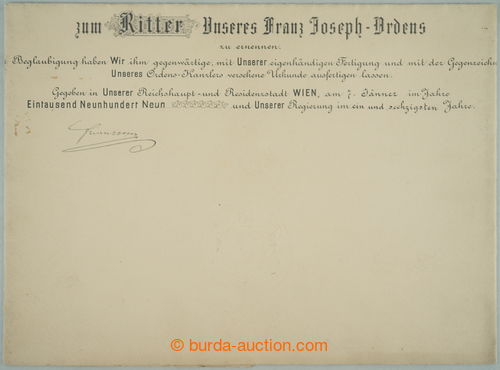 zum Ritter Unseres Franz Joseph-Ordens
zu ernennen.
Beglaubigung haben Wir ihm gegenwärtige, mit Unserer eigenhändigen Fertigung und mit der Gegenzeichnu
Unseres Ordens-Kanzlers versehene Urkunde ausfertigen lassen.
Gegeben in Unserer Reichshaupt- und Residenzstadt WIEN, am 7. Jänner im Jahre
Eintausend Neunhundert Neun und Unserer Regierung im ein und sechzigsten Jahre.
© burda-auction.com